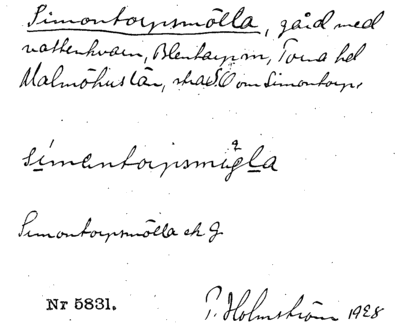 Simontorpsmölla, gård med
vattenkvarn, Blentarp sn, Torna hd
Malmöhus län, strax SO om Simontorp.
símontorpsmǫgla
Simontorpsmölla ek G
Nr 5831.
P. Holmström 1928